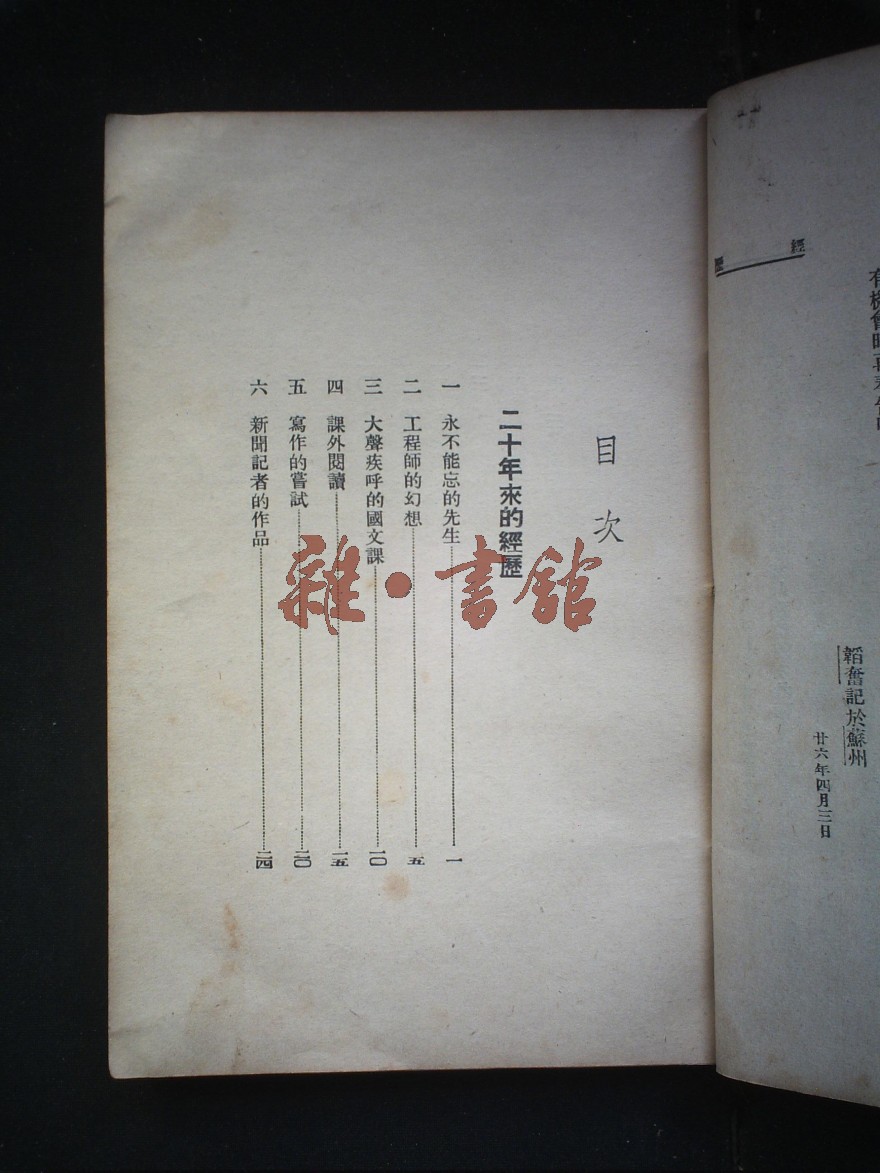 經歷
韜奮記於蘇州
廿六年四月三日
目次
二十年來的經歷
一 永不能忘的先生 一
二 工程師的幻想 五
三 大聲疾呼的國文課 一〇
四 課外閱讀 一五
五 寫作的嘗試 二〇
六 新聞記者的作品 二四
雜·書館